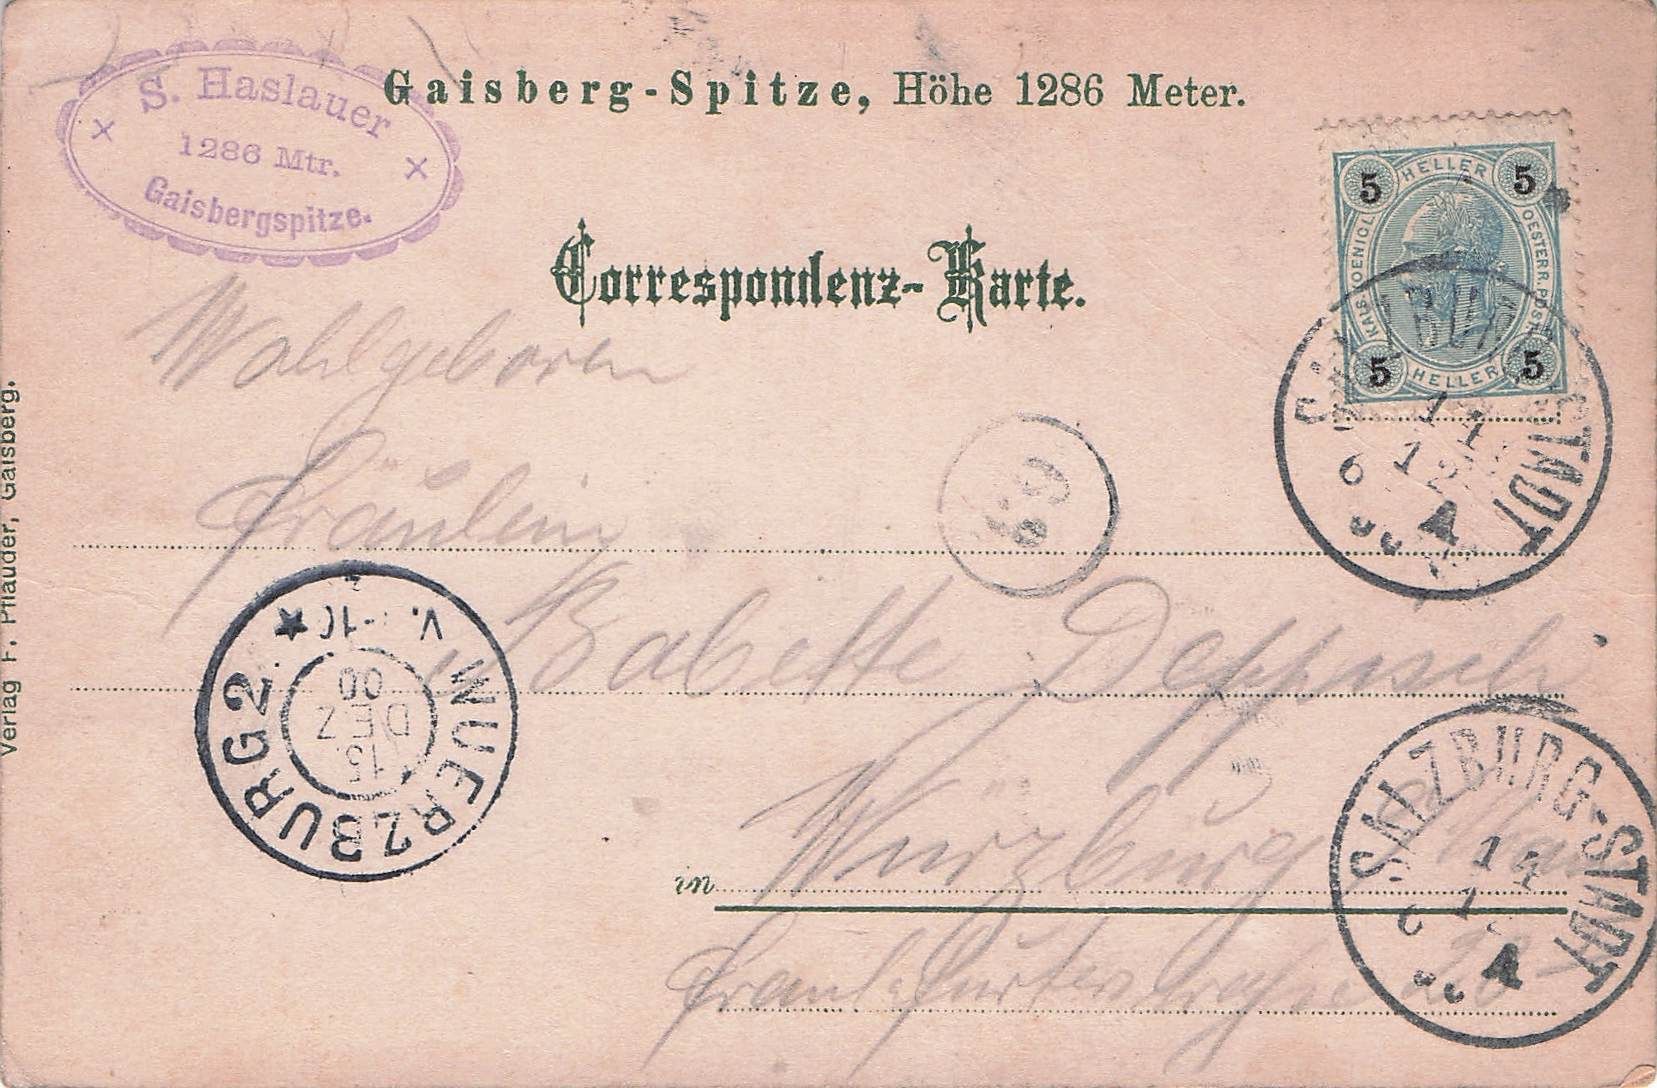 S. Haslauer
1286 Mtr.
Gaisbergspitze.
Gaisberg-Spitze, Höhe 1286 Meter.
Correspondenz-Karte.
5 HELLER 5
KAIS. KOENIGL. OESTERR. POST
5 HELLER 5
SALZBURG-STADT
11
12
6
A
Wohlgeboren
Fräulein
69
Babette Deppisch
WUERZBURG 2
13
DEZ
00
V.
in Würzburg
SALZBURG-STADT
11
1
6
A
Frankfurterstraße
Verlag F. Pflauder, Gaisberg.